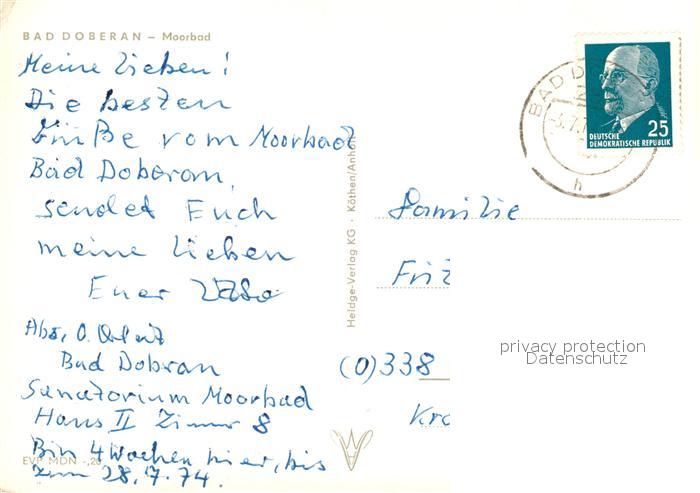 BAD DOBERAN – Moorbad
Meine Lieben!
Die besten
Grüße vom Moorbad
Bad Doberan,
sendet Euch
meine Lieben
Euer
Abs, O.
Bad Dobran
Sanatorium Moorbad
Haus II Zimmer 8
Bin 4 Wochen hier, bis
zum 28.7.74.
EVP MDN -,20
Heldge-Verlag KG · Köthen/Anhalt
BAD D
-5.7.7
h
25
DEUTSCHE
DEMOKRATISCHE REPUBLIK
Familie
Frit
(0)338
Kro
privacy protection
Datenschutz